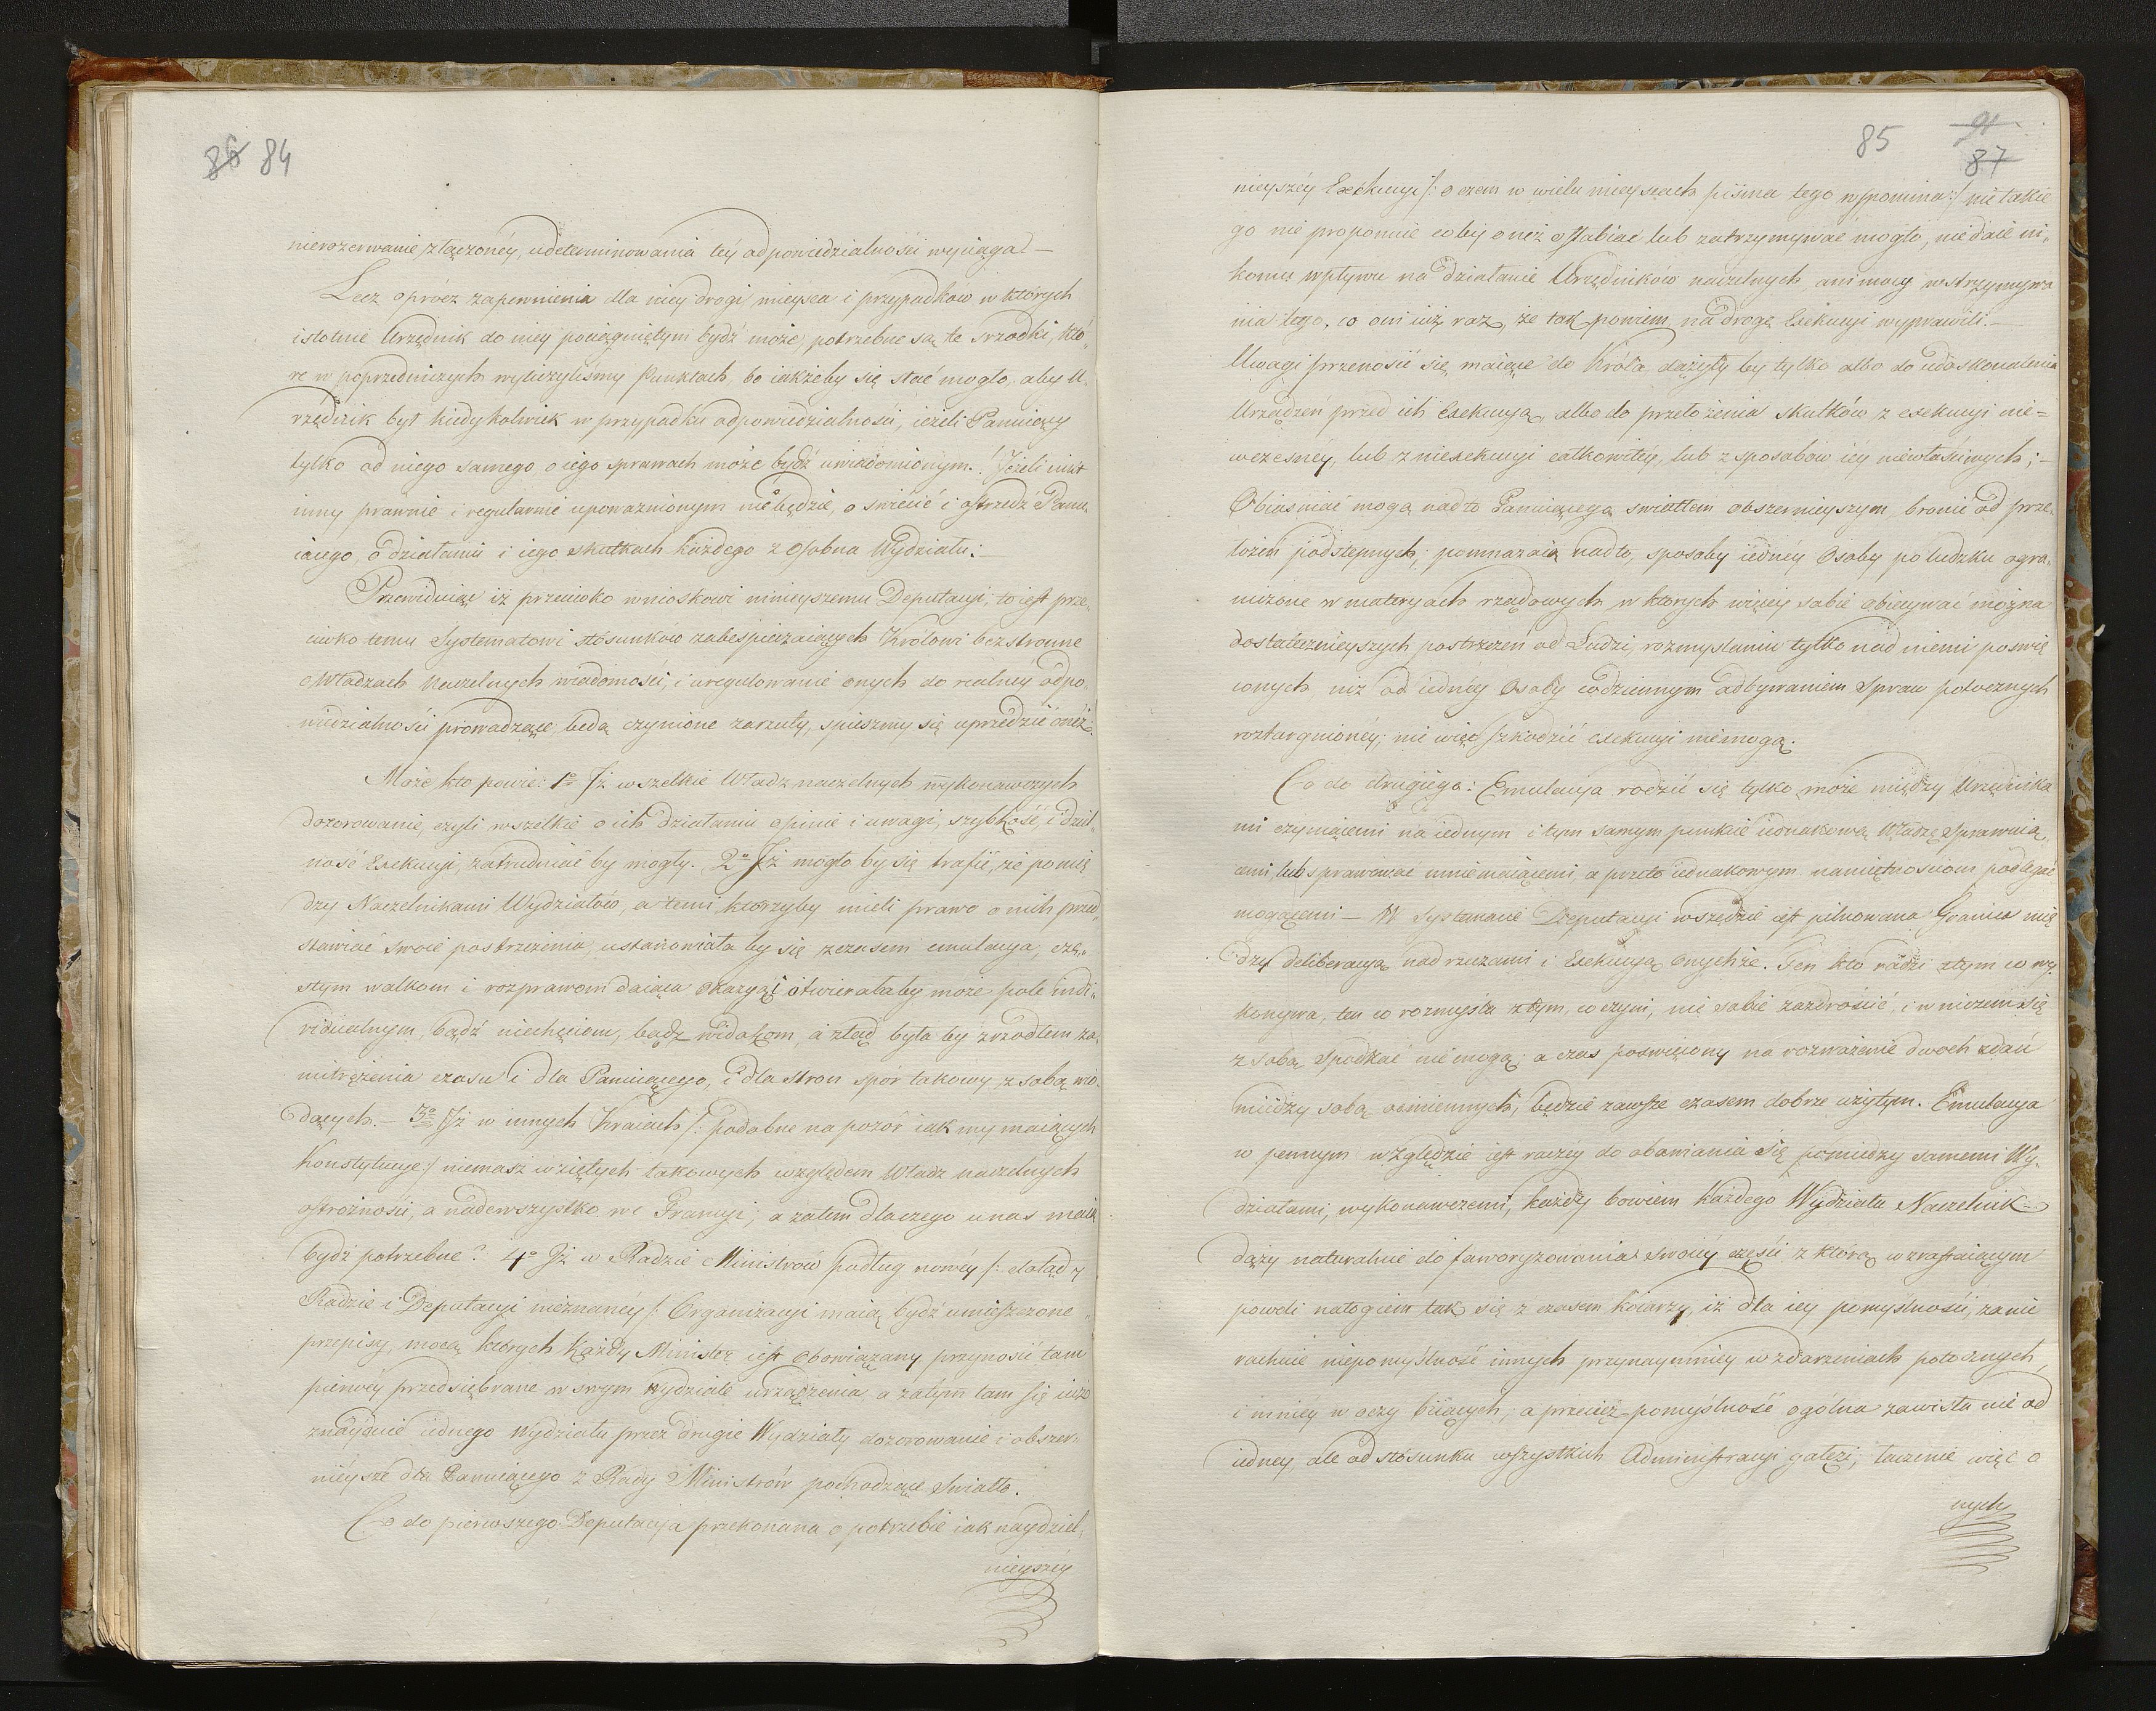 86 84
nierozerwanie złączonéy, udeterminowania téy odpowiedzialności wyciąga —
Lecz oprócz zapewnienia dla niey drogi mieysca i przypadków w których
istotnie Urzędnik do niey pociągniętym bydź może, potrzebne są te srzodki, któ„
re w poprzedniczych wyliczyliśmy Punktach, bo iakżeby się stać mogło, aby U„
rzędnik był kiedykolwiek w przypadku odpowiedzialności, ieżeli Panuiący
tylko od niego samego o iego sprawach może bydź uwiadomionym.! Jeżeli nikt
inny prawnie i regularnie upoważnionym niebędzie, oświecić i ostrzedz Panu„
iącego, o działaniu i iego skutkach każdego z osobna Wydziału: —
Przewiduiąc iż przeciwko wnioskowi ninieyszemu Deputacyi, to iest prze„
ciwko temu Systematowi stosunków zabespieczaiących Królowi bezstronne
o Władzach Naczelnych wiadomości, i uregulowanie onych do réalnéy odpo„
wiedzialności prowadzące, będą czynione zarzuty, spieszmy się uprzedzić onéż:
Może kto powie: 1o Iż wszelkie Władz naczelnych wykonawczych
dozorowanie, czyli wszelkie o ich działaniu opinie i uwagi, szybkość, i dziel„
ność Exekucyi, zatrudniać by mogły. 2o Iż mogło by się trafić, że pomię
dzy Naczelnikami Wydziałów, a temi, którzyby mieli prawo o nich przed„
stawiać swoie postrzeżenia, ustanowiała by się z czasem emulacya, czę„
stym walkom i rozprawom daiąca okazyą i otwierałaby może pole indi„
vidualnym, bądź niechęciom, bądź widokom, a ztąd była by zrzódłem za„
mitrężenia czasu i dla Panuiącego, i dla stron spór takowy z sobą wio„
dących. — 3o Iż w innych Kraiach /: podobne napozór iak my maiących
Konstytucye:/ niemasz wziętych takowych względem Władz naczelnych
ostrożności, a nadewszystko we Francyi; a zatem dlaczego u nas maią
bydź potrzebne? 4o Iż w Radzie Ministrów podług nowéy /: dotąd
Radzie i Deputacyi nieznanéy /: Organizacyi maią bydź umieszczone
przepisy, mocą których każdy Minister iest obowiązany przynosić tam
pierwéy przedsiębrane w swym wydziale urządzenia, a zatym tam się iuż
znayduie iednego Wydziału przez drugie Wydziały dozorowanie i obszer„
niéysze dla Panuiącego z Rady Ministrów pochodzące światło.
Co do pierwszego: Deputacyja przekonana o potrzebie iak naydziel„
nieyszéy
85 91
87
nieyszéy Exékucyi /: o czem w wielu mieyscach pisma tego wspomina:/ nic takie
go nie proponuie coby onéż osłabiać lub zatrzymywać mogło, nie daie ni„
komu wpływu na działanie Urzędników naczelnych, ani mocy wstrzymywa
nia tego, co oni iuż raz, że tak powiem, na drogę Exekucyi wyprawili. —
Uwagi przenosić się maiące do Króla, dążyły by tylko albo do udoskonalenia
Urządzeń przed ich Exekucyą, albo do przełożenia skutków z exekucyi nie=
wczesnéy, lub z nieexekucyi całkowitéy, lub z sposobów iéy niewłaściwych; —
Obiaśniać mogą nadto Panuiącego światłem obszernieyszym, bronić od prze„
łożeń podstępnych; pomnażaią nadto, sposoby iednéy Osoby po ludzku ogra„
niczone w materyach rządowych, w których więcey sobie obiecywać można
dostatecznieyszych postrzeżeń od Ludzi, rozmyślaniu tylko nad niemi poświę
conych, niż od iednéy Osoby codziennym odbywaniem Spraw potocznych
roztargnionéy; nic więc szkodzić exekucyi niemogą.
Co do drugiego: Emulacya rodzić się tylko może między Urzędnika
mi czyniącemi na iednym i tym samym punkcie iednakową Władzę sprawuią
cemi, lub sprawować mniemaiącemi, a przeto iednakowym namiętnościom podlegać
mogącemi — W Systemacie Deputacyi wszędzie iest pilnowana Granica mię
dzy deliberacyą nad rzeczami i Exekucyą onychże. Ten kto radzi z tym co wy
konywa, ten co rozmyśla z tym, co czyni, nic sobie zazdrościć, i w niczem się
z sobą spotkać niemogą; a czas poswięcony na rozważenie dwoch zdań
między sobą odmiennych, będzie zawsze czasem dobrze użytym. Emulacya
w pewnym względzie iest raczéy do obawiania się pomiędzy samemi Wy„
działami, wykonawczemi, każdy bowiem każdego Wydziału Naczelnik
dąży naturalnie do faworyzowania swoiéy części z którą wzrastaiącym
powoli nałogiem tak się z czasem koiarzy, iż dla iéy pomyślności, za nic
rachuie niepomyślność innych przynaymniey w zdarzeniach potocznych
i mniey w oczy biiących; a przecież pomyślność ogólna zawisła nie od
iedney, ale od stósunku wszystkich Administracyi gałęzi; łączenie więc o
nych